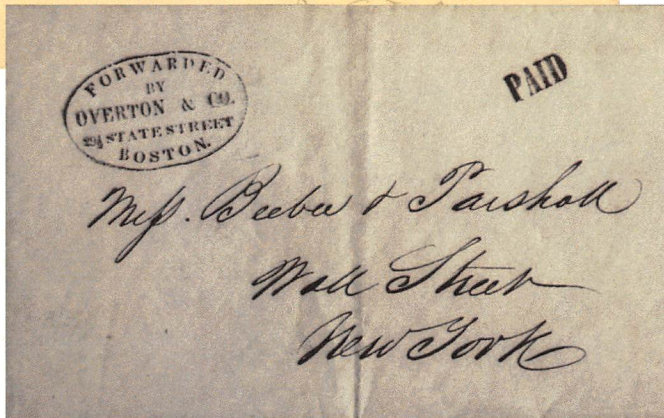 FORWARDED
BY
OVERTON & CO.
29½ STATE STREET
BOSTON.
PAID
Mess. Beebee &
Wall Street
New York